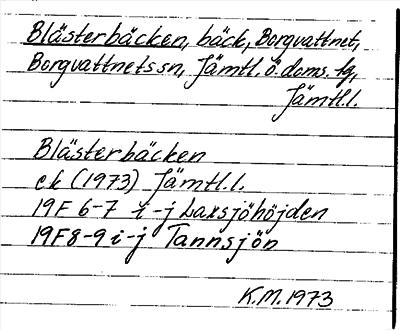 Blästerbäcken, bäck, Borgvattnet,
Borgvattnets sn, Jämtl. ö. doms. tg,
Jämtl.l.
Blästerbäcken
ek (1973) Jämtl.l.
19F 6-7 i-j Laxsjöhöjden
19F 8-9 i-j Tannsjön
K.M. 1973